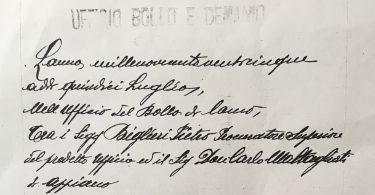 UFFICIO BOLLO E DEMANIO
L'anno millenovecentoventicinque
addì quindici Luglio,
Nell'Ufficio del Bollo di
Tra i Sigg Biglieri Pietro Procuratore Superiore
del predetto ufficio ed il Sig Don Carlo